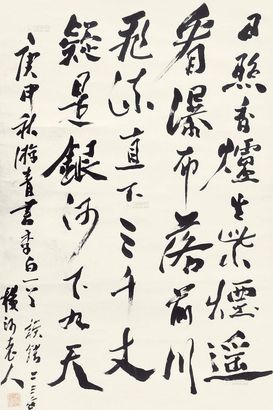 日照香爐生紫煙遥
看瀑布落前川
飛流直下三千丈
疑是銀河下九天
庚申秋游青 書李白
老人